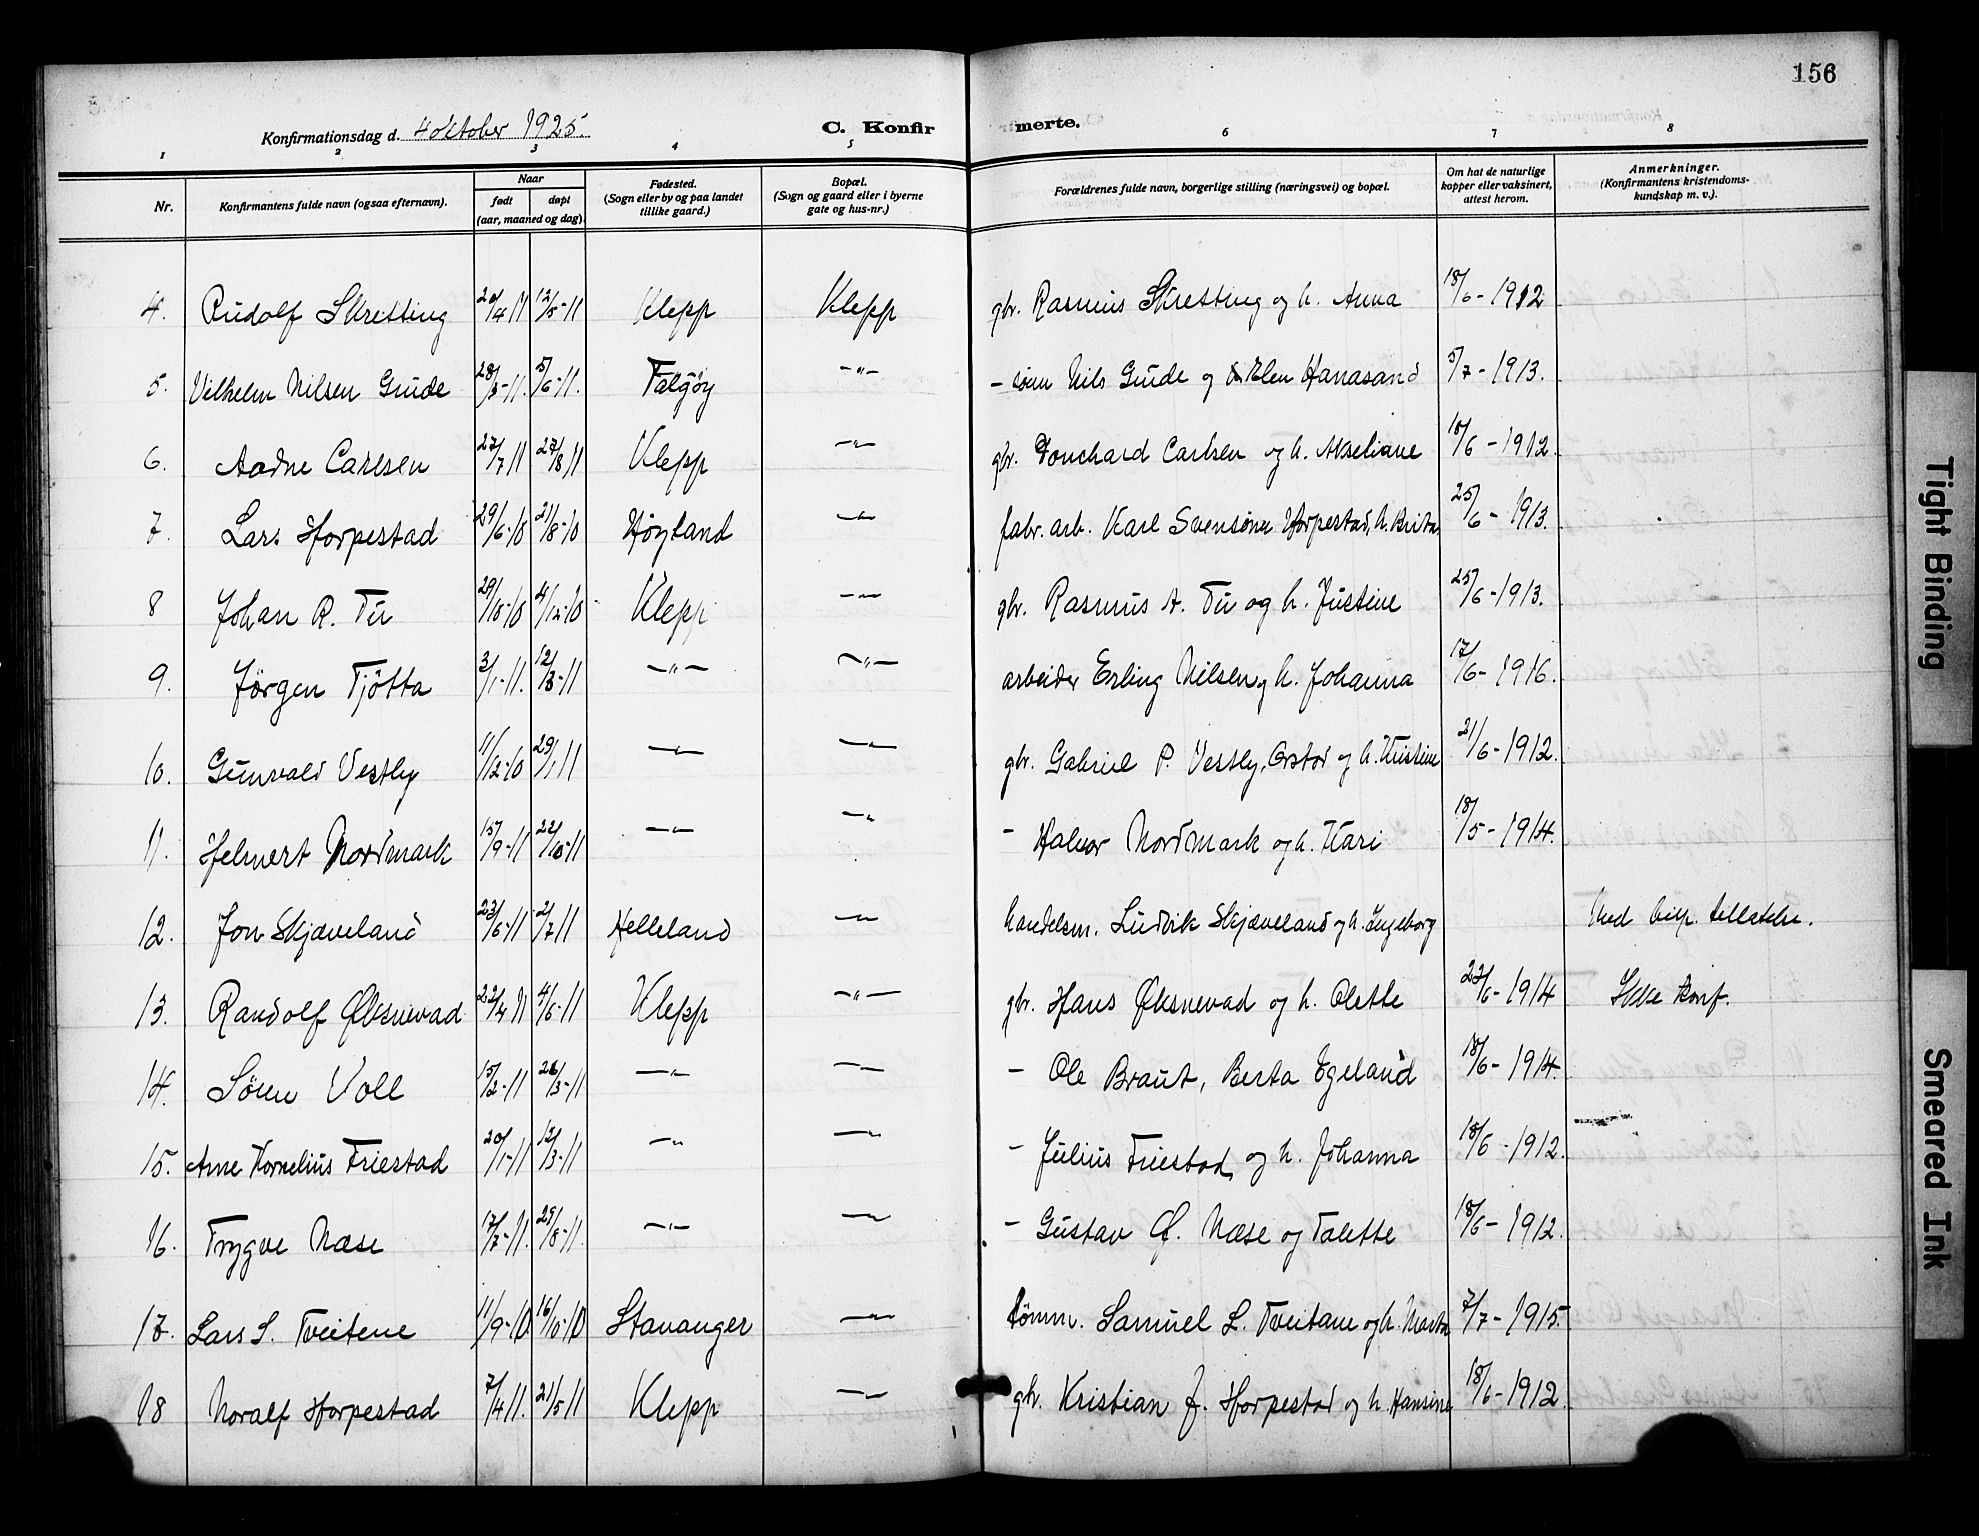 156
Konfirmationsdag d. 4 oktober 1925. C. Konfirmerte.
1 2 3 4 5 6 7 8
Nr. Konfirmantens fulde navn (ogsaa efternavn). Naar født døpt (aar, maaned og dag). Fødested. (Sogn eller by og paa landet tillike gaard.) Bopæl. (Sogn og gaard eller i byerne gate og hus-nr.) Forældrenes fulde navn, borgerlige stilling (næringsvei) og bopæl. Om hat de naturlige kopper eller vaksinert, attest herom. Anmerkninger. (Konfirmantens kristendomskundskap m. v.).
4. Rudolf Skretting 20/4 11 12/5-11 Klepp Klepp gbr. Rasmus Skretting og h. Anna 18/6-1912
5. Vilhelm Nilsen Gude 28/3-11. 5/6-11. Talgøy -"- - søm Nils Gude og Elen Hanasand 5/7-1913.
6. Aadne Carlsen 27/7 11 27/8 11 Klepp -"- gbr. Carlsen og h. Akseliane 18/6-1912.
7. Lars Horpestad 29/6-10 21/8-10 Høyland -"- fabr. arb. Karl Svensønn Horpestad, h. Brita 25/6-1913.
8 Johan R. Tu 29/10-10 4/12-10 Klepp -"- gbr. Rasmus A. Tu og h. Justine 25/6-1913.
9. Jørgen Tjøtta 3/1-11. 12/3-11 -"- -"- arbeider Erling Nilsen og h. Johanna 17/6-1916.
10. Gunvald Vestly 11/12-10 29/1 11 -"- -"- gbr. Gabriel P. Vestly, Orstad og h. Kristine 21/6-1912.
11. Helmert Nordmark 15/9-11 22/10-11 -"- -"- - Halvor Nordmark og h. Kari 18/5-1914.
12. Jon Skjæveland 23/5-11 2/7 11 Helleland -"- handelsm. Ludvik Skjæveland og h. Ingeborg Med bisp. tillatelse.
13. Randolf Øksnevad 22/4 11 4/6-11 Klepp -"- gbr. Hans Øksnevad og h. Olette 23/6-1914 Ikke konf.
14. Søren Voll 15/2-11 26/3-11 -"- -"- - Ole Braut, Berta Egeland 18/6-1914.
15. Arne Kornelius Friestad 20/1-11 12/3-11 -"- -"- - Julius Friestad og h. Johanna 18/6-1912.
16. Trygve Næse 17/7-11. 29/8-11. -"- -"- - Gustav G. Næse og Talette 18/6-1912.
17. Lars S. Tveitene 11/9-10. 16/10-10 Stavanger -"- tømm. Samuel L. Tveitane og h. Marta 7/7-1915.
18 Noralf Horpestad 7/4 11. 21/5 11 Klepp -"- gbr. Kristian J. Horpestad og h. Hansine 18/6-1912.
Tight Binding
Smeared Ink